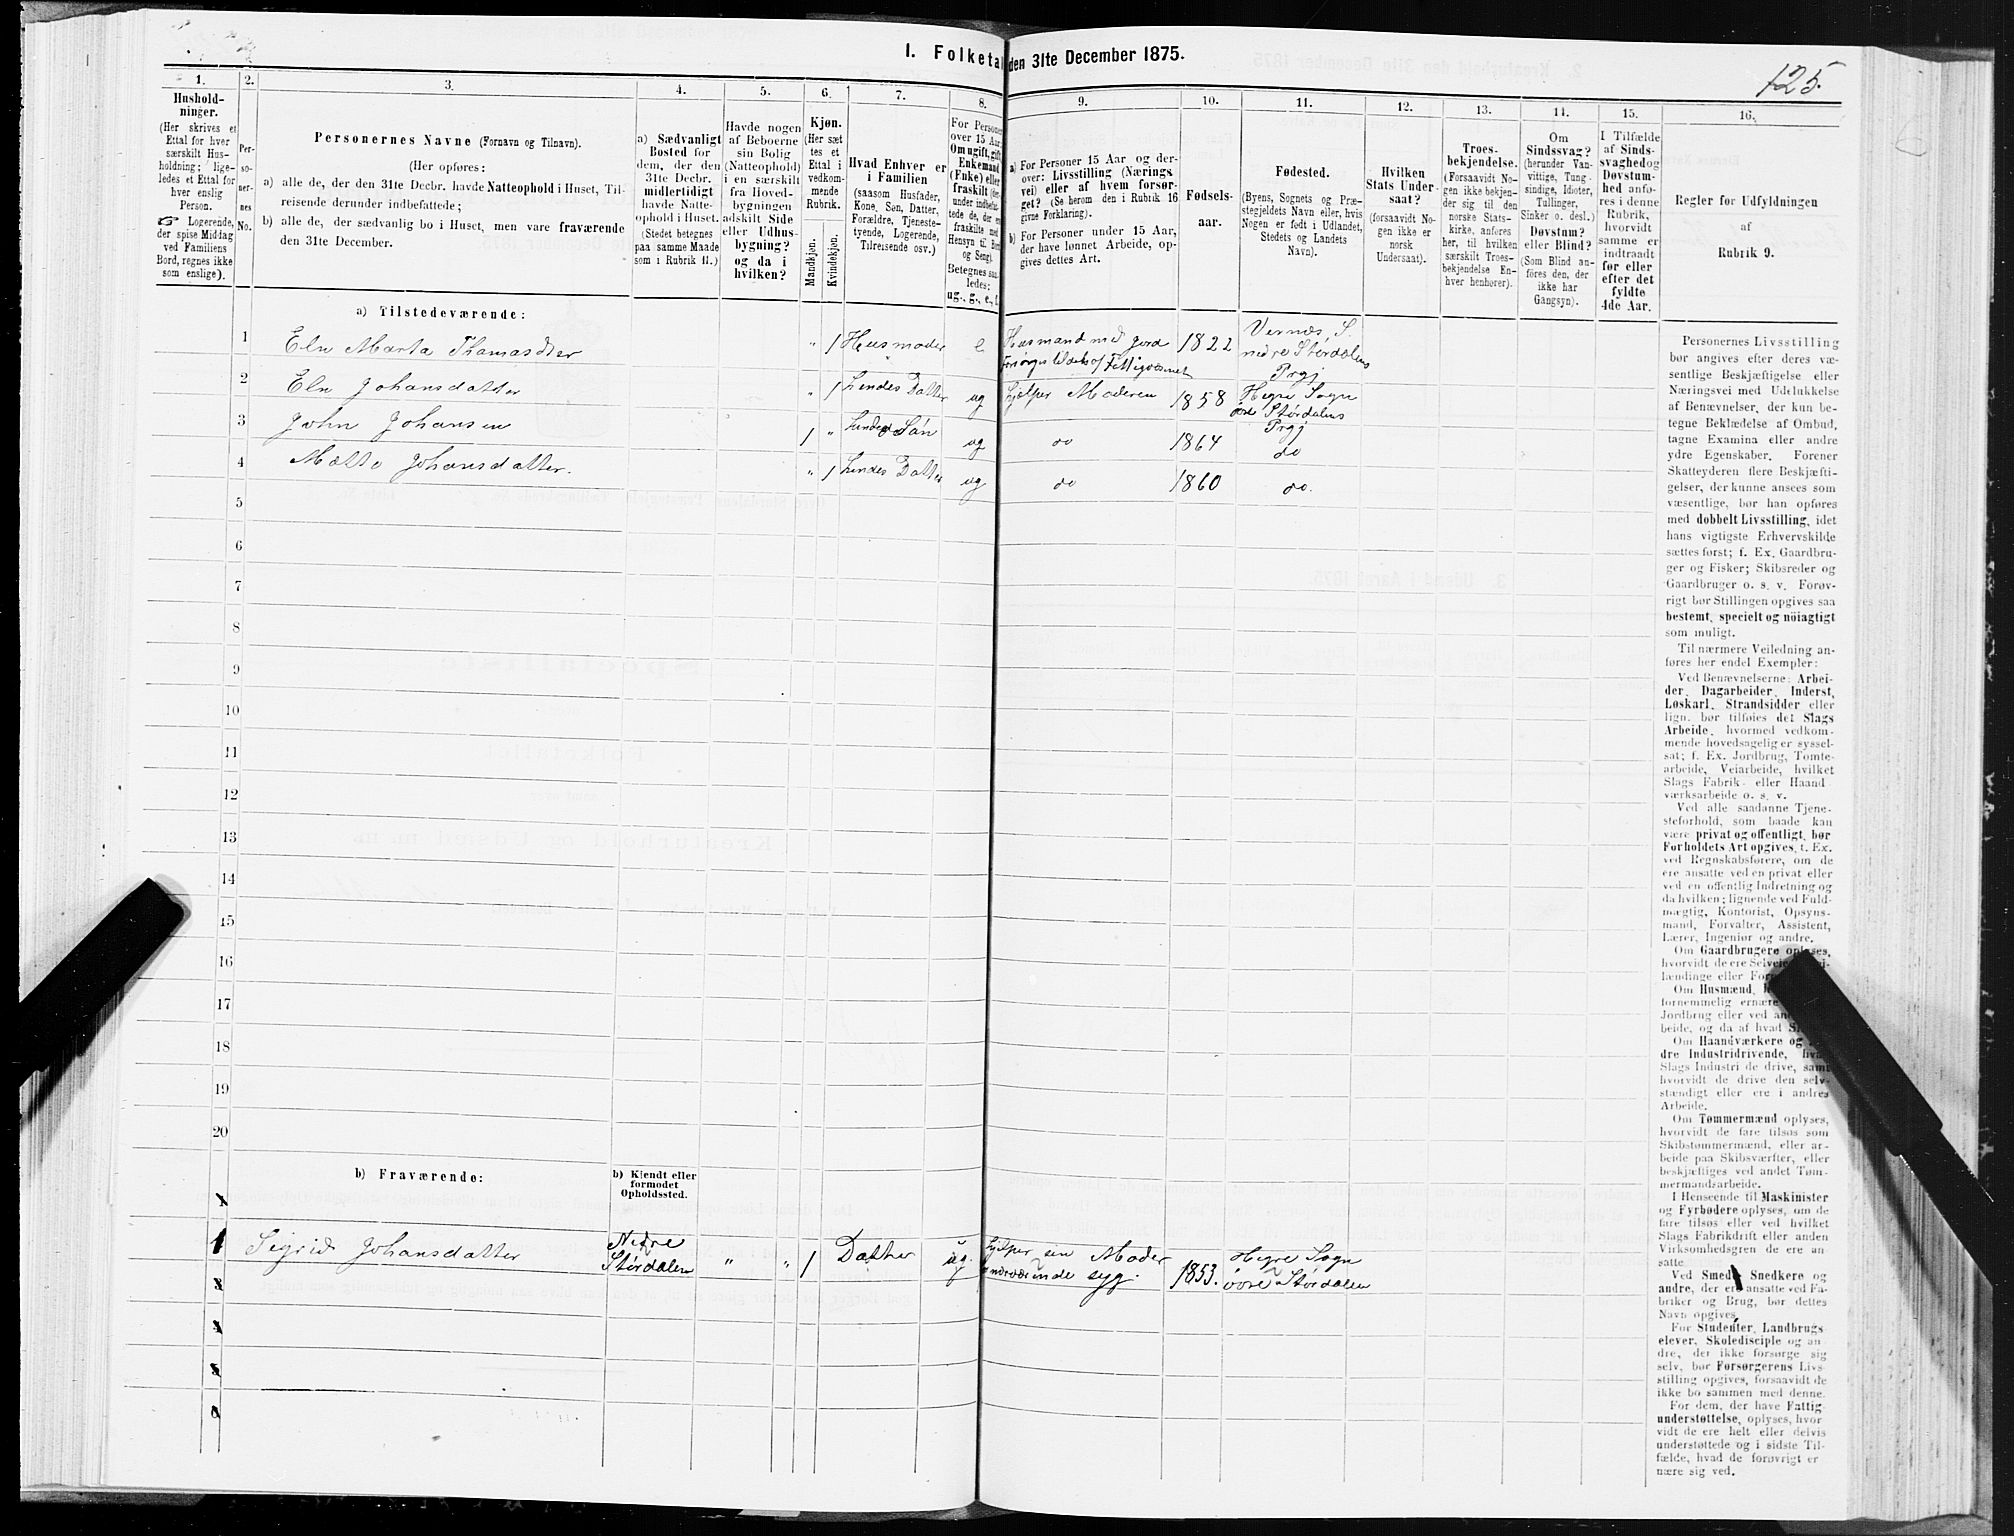 I. Folketal den 31te December 1875.
125.
1.
2.
3.
4.
5.
6.
7.
8.
9.
10.
11.
12.
13.
14.
15.
16.
Hushold-
ninger.
(Her skrives et
Ettal for hver
særskilt Hus-
holdning; lige-
ledes et Ettal for
hver enslig
Person.
☞ Logerende,
der spise Middag
ved Familiens
Bord, regnes ikke
som enslige).
Per-
soner-
nes
No.
Personernes Navne (Fornavn og Tilnavn).
(Her opføres:
a) alle de, der den 31te Decbr. havde Natteophold i Huset, Til-
reisende derunder indbefattede;
b) alle de, der sædvanlig bo i Huset, men vare fraværende
den 31te December.
a) Sædvanligt
Bosted for
dem, der den
31te Decbr.
midlertidigt
havde Natte-
ophold i Huset.
(Stedet betegnes
paa samme Maade
som i Rubrik 11.)
Havde nogen
af Beboerne
sin Bolig
(Natteophold)
i en særskilt
fra Hoved-
bygningen
adskilt Side
eller Udhus-
bygning?
og da i
hvilken?
Kjøn.
(Her sæt
tes et
Ettal i
vedkom-
mende
Rubrik.
Mandkjøn.
Kvindekjøn.
Hvad Enhver er
i Familien
(saasom Husfader,
Kone, Søn, Datter,
Forældre, Tjeneste-
tyende, Logerende,
Tilreisende osv.)
For Personer
over 15 Aar:
Om ugift, gift,
Enkemand
(Enke) eller
fraskilt
Betegnes saa-
ledes:
ug., g., e., f.
a) For Personer 15 Aar og der-
over: Livsstilling (Nærings
vei) eller af hvem forsør-
get? (Se herom den i Rubrik 16
givne Forklaring).
b) For Personer under 15 Aar,
der have lønnet Arbeide, op-
gives dettes Art.
Fødsels-
aar.
Fødested.
(Byens, Sognets og Præ-
stegjeldets Navn eller, hvis
Nogen er født i Udlandet,
Stedets og Landets
Navn).
Hvilken
Stats Under-
saat?
(forsaavidt No-
gen ikke er
norsk
Undersaat).
Troes-
bekjendelse.
(Forsaavidt No-
gen ikke bekjen-
der sig til den
norske Stats-
kirke, anføres
her, til hvilken
særskilt Troes-
bekjendelse En-
hver henhører).
Om
Sindssvag?
(herunder Van-
vittige, Tung-
sindige, Idioter,
Tullinger,
Sinker o. desl.)
Døvstum?
eller Blind?
(Som Blind an-
føres den, der
ikke har
Gangsyn).
I Tilfælde
af Sinds-
svaghed og
Døvstum-
hed anfø-
res i denne
Rubrik,
hvorvidt
samme er
indtraadt
før eller
efter det
fyldte
4de Aar.
Regler for Udfyldningen
af
Rubrik 9.
a) Tilstedeværende:
1 Eln Marta Thomasdter " 1 Husmoder e Husmand med Jord 1822 Vernæs S
Forsørges tildels af Fattigvæsenet nedre Størdalens
Prgj
2 Eln Johansdatter " 1 Hendes Datter ug Hjelper Moderen 1858 Hegre Sogn
øvre Størdalens
Prgj
3 John Johansen 1 " Hendes Søn ug do 1864 do
4 Mætte Johansdatter. " 1 Hendes Datter ug do 1860 do.
5
6
7
8
9
10
11
12
13
14
15
16
17
18
19
20
b) Fraværende:
b) Kjendt eller
formodet
Opholdssted.
1 Sigrid Johansdatter Nedre
Størdalen " " 1 Datter ug. Hjelper sin Moder
seg. 1853. Hegre Sogn
øvre Størdalen
Personernes Livsstilling
bør angives efter deres væ-
sentlige Beskjæftigelse eller
Næringsvei med Udelukkelse
af Benævnelser, der kun be-
tegne Beklædelse af Ombud,
tagne Examina eller andre
ydre Egenskaber. Forener
Skatteyderen flere Beskjæfti-
gelser, der kunne ansees som
væsentlige, bør han opføres
med dobbelt Livsstilling, idet
hans vigtigste Erhvervskilde
sættes først; f. Ex. Gaardbru-
ger og Fisker; Skibsreder og
Gaardbruger o. s. v. Forøv-
rigt bør Stillingen opgives saa
bestemt, specielt og nöiagtigt
som muligt.
Til nærmere Veiledning an-
føres her endel Exempler:
Ved Benævnelserne: Arbei-
der, Dagarbeider, Inderst,
Løskarl, Strandsidder eller
lign. bør tilføies det Slags
Arbeide, hvormed vedkom-
mende hovedsagelig er syssel-
sat; f. Ex. Jordbrug, Tomte-
arbeide, Veiarbeide, hvilket
Slags Fabrik- eller Haand
værksarbeide o. s. v.
Ved alle saadanne Tjene-
steforhold, som baade kan
være privat og offentligt, bør
Forholdets Art opgives, t. Ex.
ved Regnskabsførere, om de
ere ansatte ved en privat eller
ved en offentlig Indretning og
da hvilken; lignende ved Fuld-
mægtig, Kontorist, Opsyns-
mand, Forvalter, Assistent,
Lærer, Ingeniør og andre.
Om Gaardbrugere oplyses,
hvorvidt de ere
lændinge eller
Om Husmænd,
fornemmelig ernære
Jordbrug eller ved
beide, og da af hvad
Om Haandværkere og
dre Industridrivende,
Slags Industri de drive, samt
hvorvidt de drive den selv-
stændigt eller ere i andres
Arbeide.
Om Tømmermænd oplyses,
hvorvidt de fare tilsøs som
Skibstømmermænd, eller ar-
beide paa Skibsværfter, eller
beskjæftiges ved andet Tøm-
mermandsarbeide.
I Henseende til Maskinister
og Fyrbødere oplyses, om de
fare tilsøs eller ved hvilket
Slags Fabrikdrift eller anden
Virksomhedsgren de ere an-
satte
Ved Smede, Snedkere og
andre, der ere ansatte ved Fa-
briker og Brug, bør dettes
Navn opgives.
For Studenter, Landbrugs-
elever, Skoledisciple og an-
dre, der ikke forsørge sig
selv, bør Forsørgerens Livs-
stilling opgives, forsaavidt de
ikke bo sammen med denne.
For dem, der have Fattig-
understøttelse, oplyses, hvor
vidt de ere helt eller delvis
understøttede og i sidste Til-
fælde, hvad de forøvrigt er
nære sig ved.